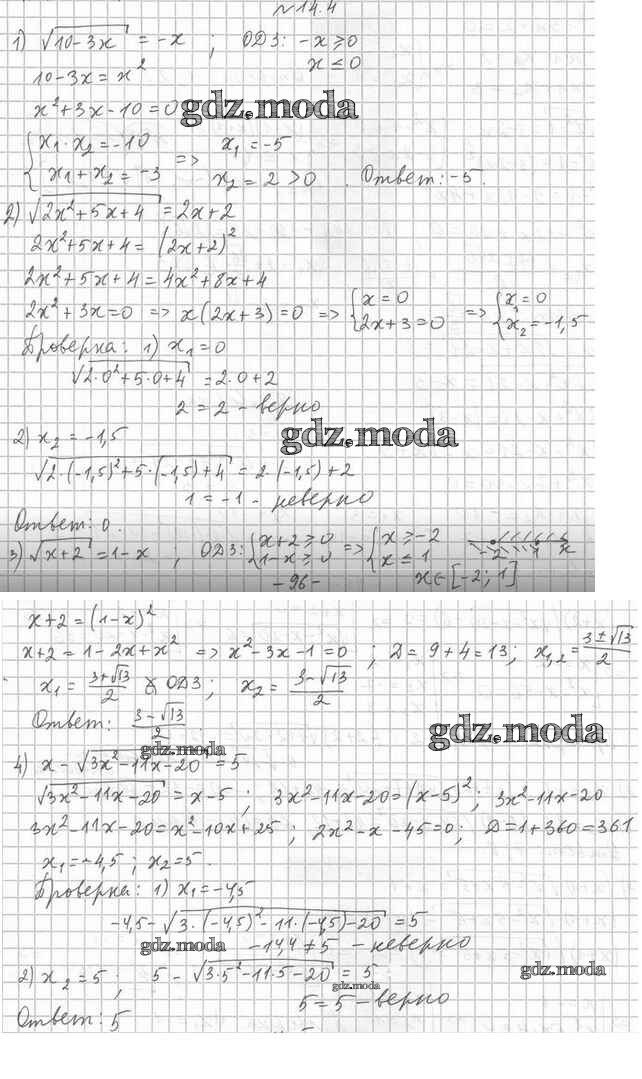 №14.4
1) √(10-3x) = -x ; ОДЗ: -x ≥ 0
x ≤ 0
10-3x = x²
x²+3x-10=0
gdz.moda
{x₁·x₂=-10 => x₁=-5
{x₁+x₂=-3 x₂=2>0. Ответ: -5.
2) √(2x²+5x+4) = 2x+2
2x²+5x+4 = (2x+2)²
2x²+5x+4=4x²+8x+4
2x²+3x=0 => x(2x+3)=0 => {x=0 {2x+3=0 => {x=0 {x₂=-1,5
Проверка: 1) x₁=0
√(2·0²+5·0+4) = 2·0+2
2=2 - верно
gdz.moda
2) x₂=-1,5
√(2·(-1,5)²+5·(-1,5)+4) = 2·(-1,5)+2
1=-1 - неверно
Ответ: 0.
3) √(x+2) = 1-x ; ОДЗ: {x+2≥0 {1-x≥0 => {x≥-2 {x≤1 -2 1 x
-96- x∈[-2;1]
x+2=(1-x)²
x+2=1-2x+x² => x²-3x-1=0 ; D=9+4=13; x₁,₂=(3±√13)/2
x₁=(3+√13)/2 ∉ ОДЗ; x₂=(3-√13)/2
Ответ: (3-√13)/2.
gdz.moda
gdz.moda
4) x-√(3x²-11x-20)=5
√(3x²-11x-20)=x-5 ; 3x²-11x-20=(x-5)² ; 3x²-11x-20
3x²-11x-20=x²-10x+25 ; 2x²-x-45=0; D=1+360=361
x₁=-4,5 ; x₂=5.
Проверка: 1) x₁=-4,5
-4,5-√(3·(-4,5)²-11·(-4,5)-20)=5
gdz.moda -14,4≠5 - неверно
2) x₂=5 ; 5-√(3·5²-11·5-20)=5
gdz.moda
gdz.moda
5=5 - верно
Ответ: 5